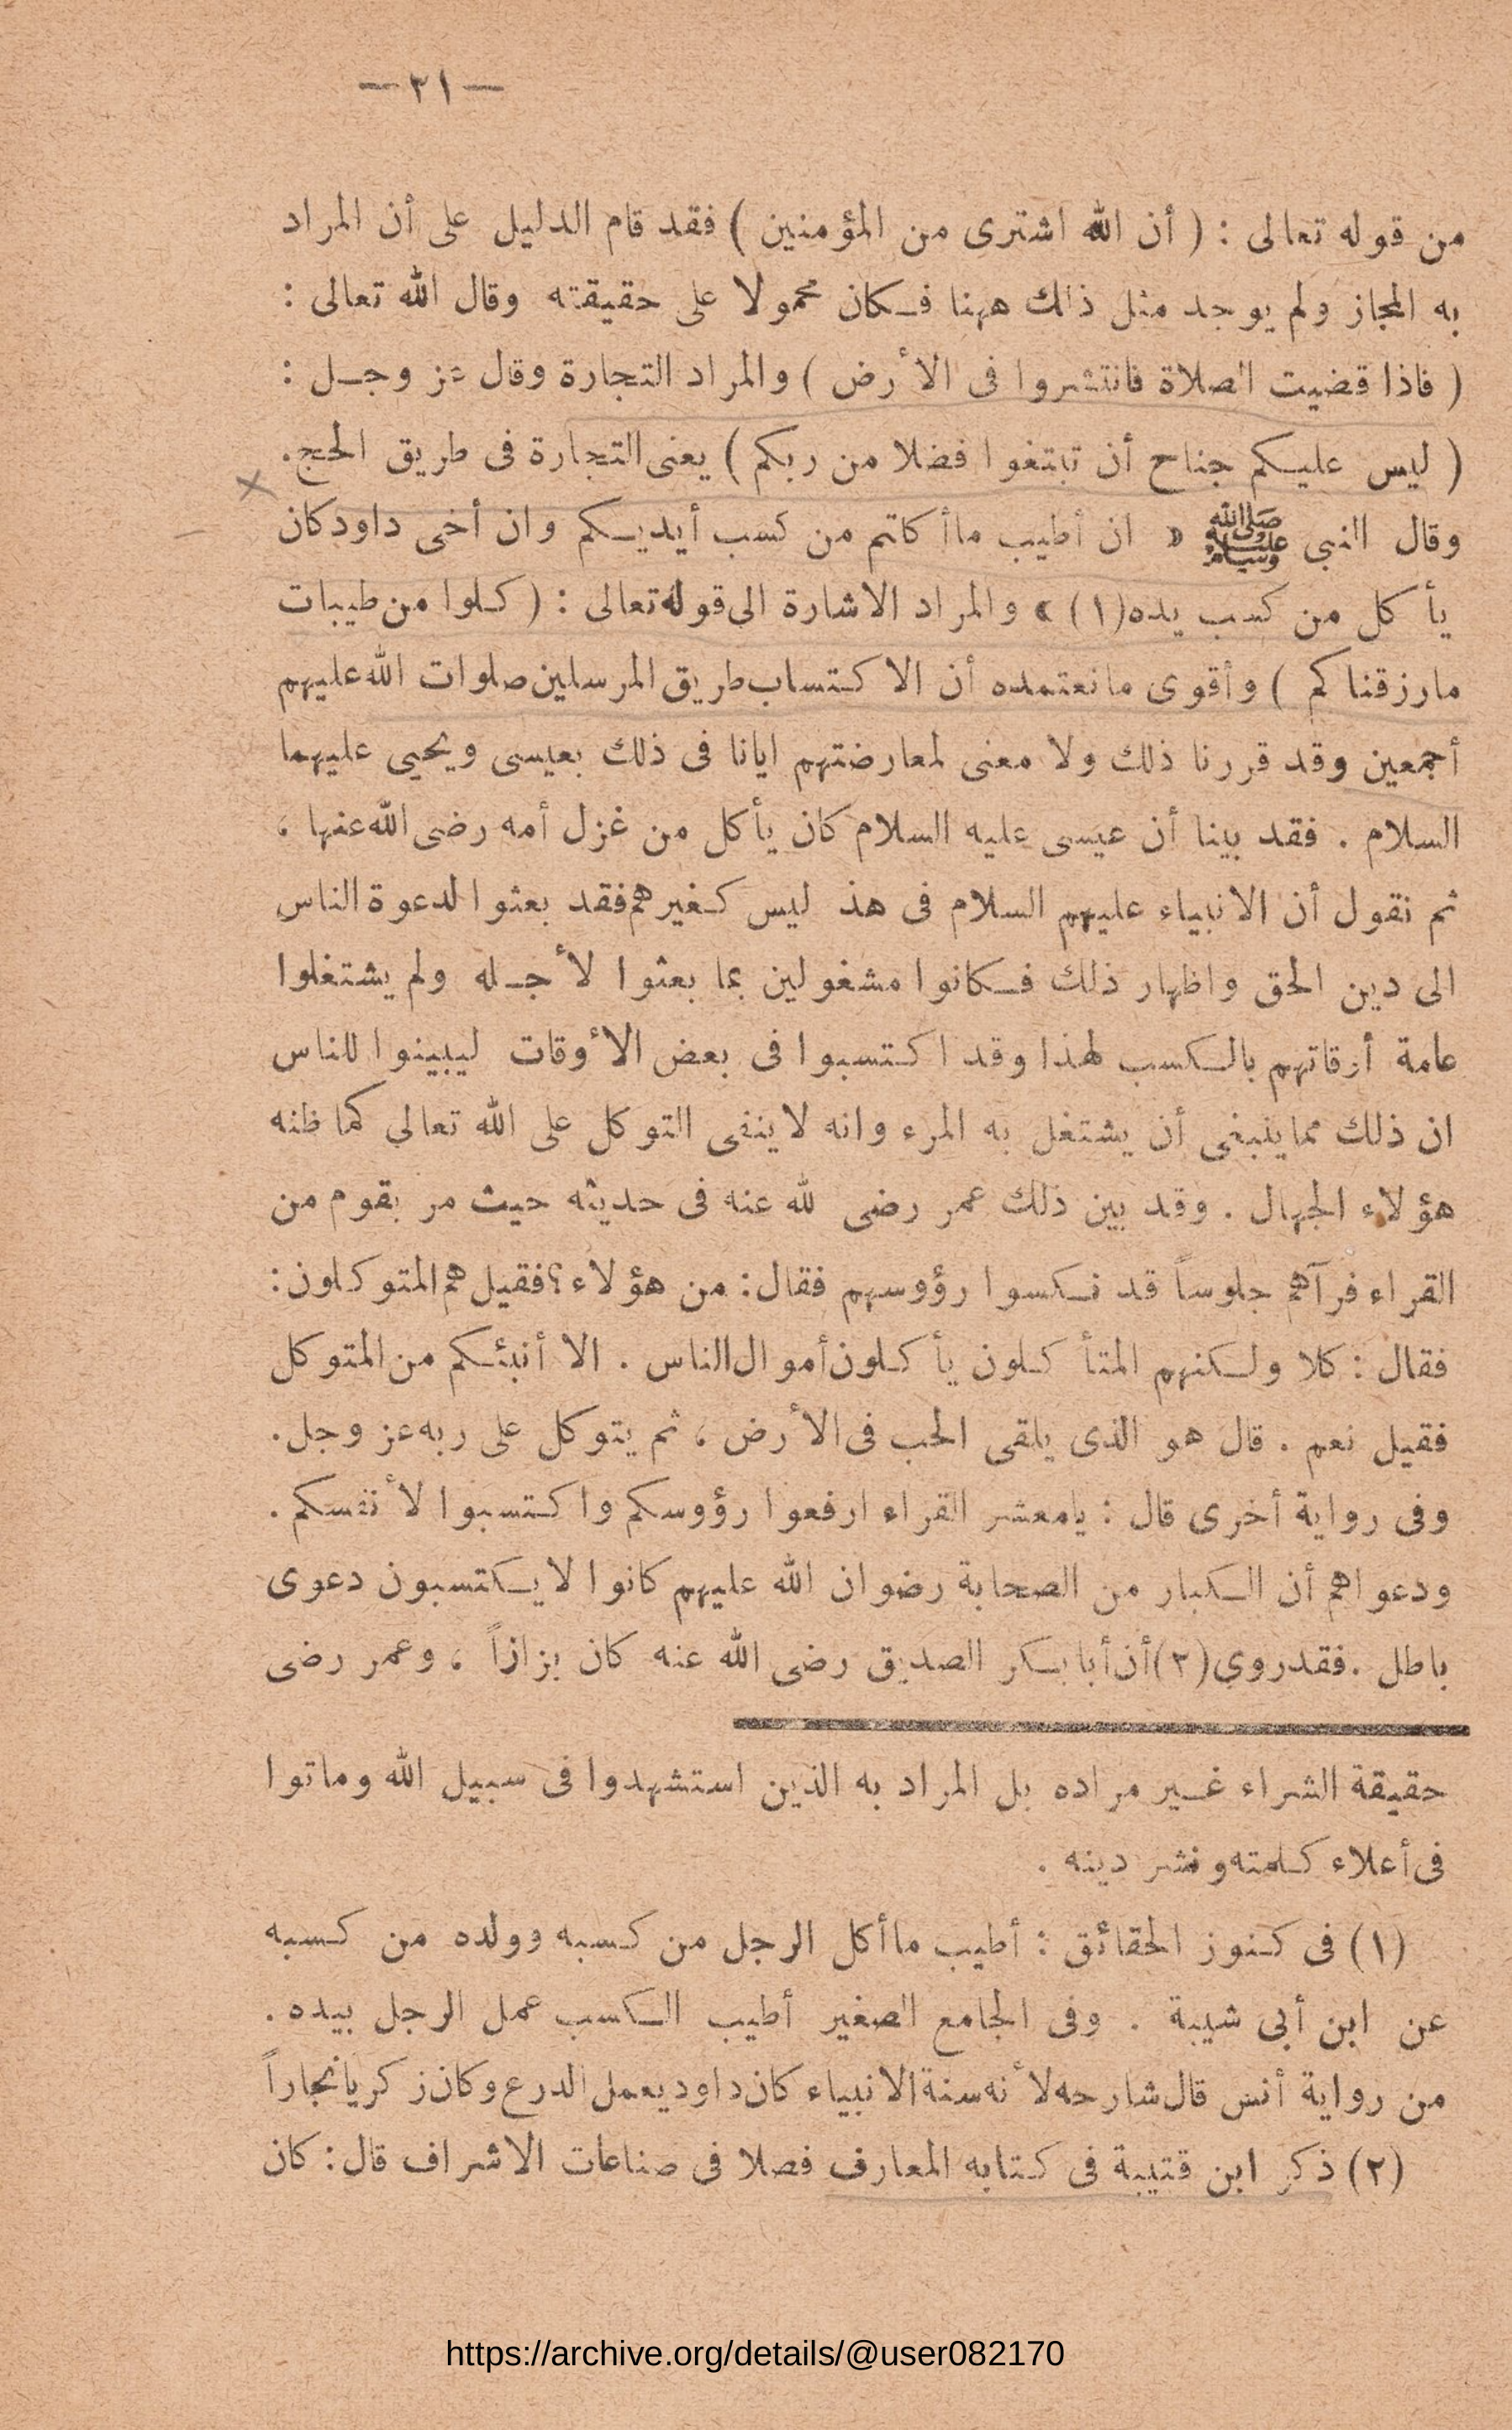 — ٢١ —
من قوله تعالى : ( أن الله اشترى من المؤمنين ) فقد قام الدليل على أن المراد
به المجاز ولم يوجد مثل ذلك ههنا فكان محمولا على حقيقته وقال الله تعالى :
( فاذا قضيت الصلاة فانتشروا فى الأرض ) والمراد التجارة وقال عز وجل :
( ليس عليكم جناح أن تبتغوا فضلا من ربكم ) يعنى التجارة فى طريق الحج .
وقال النبى ﷺ « ان أطيب ما أكلتم من كسب أيديكم وان أخى داود كان
يأكل من كسب يده (١) » والمراد الاشارة الى قوله تعالى : ( كلوا من طيبات
ما رزقناكم ) وأقوى ما نعتمده أن الاكتساب طريق المرسلين صلوات الله عليهم
أجمعين وقد قررنا ذلك ولا معنى لمعارضتهم ايانا فى ذلك بعيسى ويحيى عليهما
السلام . فقد بينا أن عيسى عليه السلام كان يأكل من غزل أمه رضى الله عنها ،
ثم نقول أن الانبياء عليهم السلام فى هذ ليس كغيرهم فقد بعثوا لدعوة الناس
الى دين الحق واظهار ذلك فكانوا مشغولين بما بعثوا لأجله ولم يشتغلوا
عامة أوقاتهم بالكسب لهذا وقد اكتسبوا فى بعض الأوقات ليبينوا للناس
ان ذلك مما ينبغى أن يشتغل به المرء وانه لا ينفى التوكل على الله تعالى كما ظنه
هؤلاء الجهال . وقد بين ذلك عمر رضى لله عنه فى حديثه حيث مر بقوم من
القراء فرآهم جلوساً قد نكسوا رؤوسهم فقال : من هؤلاء ؟ فقيل هم المتوكلون :
فقال : كلا ولكنهم المتأكلون يأكلون أموال الناس . الا أنبئكم من المتوكل
فقيل نعم . قال هو الذى يلقى الحب فى الأرض ، ثم يتوكل على ربه عز وجل .
وفى رواية أخرى قال : يا معشر القراء ارفعوا رؤوسكم واكتسبوا لأنفسكم .
ودعواهم أن الكبار من الصحابة رضوان الله عليهم كانوا لا يكتسبون دعوى
باطل . فقد روي (٢) أن أبا بكر الصديق رضى الله عنه كان بزازاً ، وعمر رضى
حقيقة الشراء غير مراده بل المراد به الذين استشهدوا فى سبيل الله وماتوا
فى أعلاء كلمته ونشر دينه .
(١) فى كنوز الحقائق : أطيب ما أكل الرجل من كسبه وولده من كسبه
عن ابن أبى شيبة . وفى الجامع الصغير أطيب الكسب عمل الرجل بيده .
من رواية أنس قال شارحه لأنه سنة الانبياء كان داود يعمل الدرع وكان زكريا نجاراً
(٢) ذكر ابن قتيبة فى كتابه المعارف فصلا فى صناعات الاشراف قال : كان
https://archive.org/details/@user082170